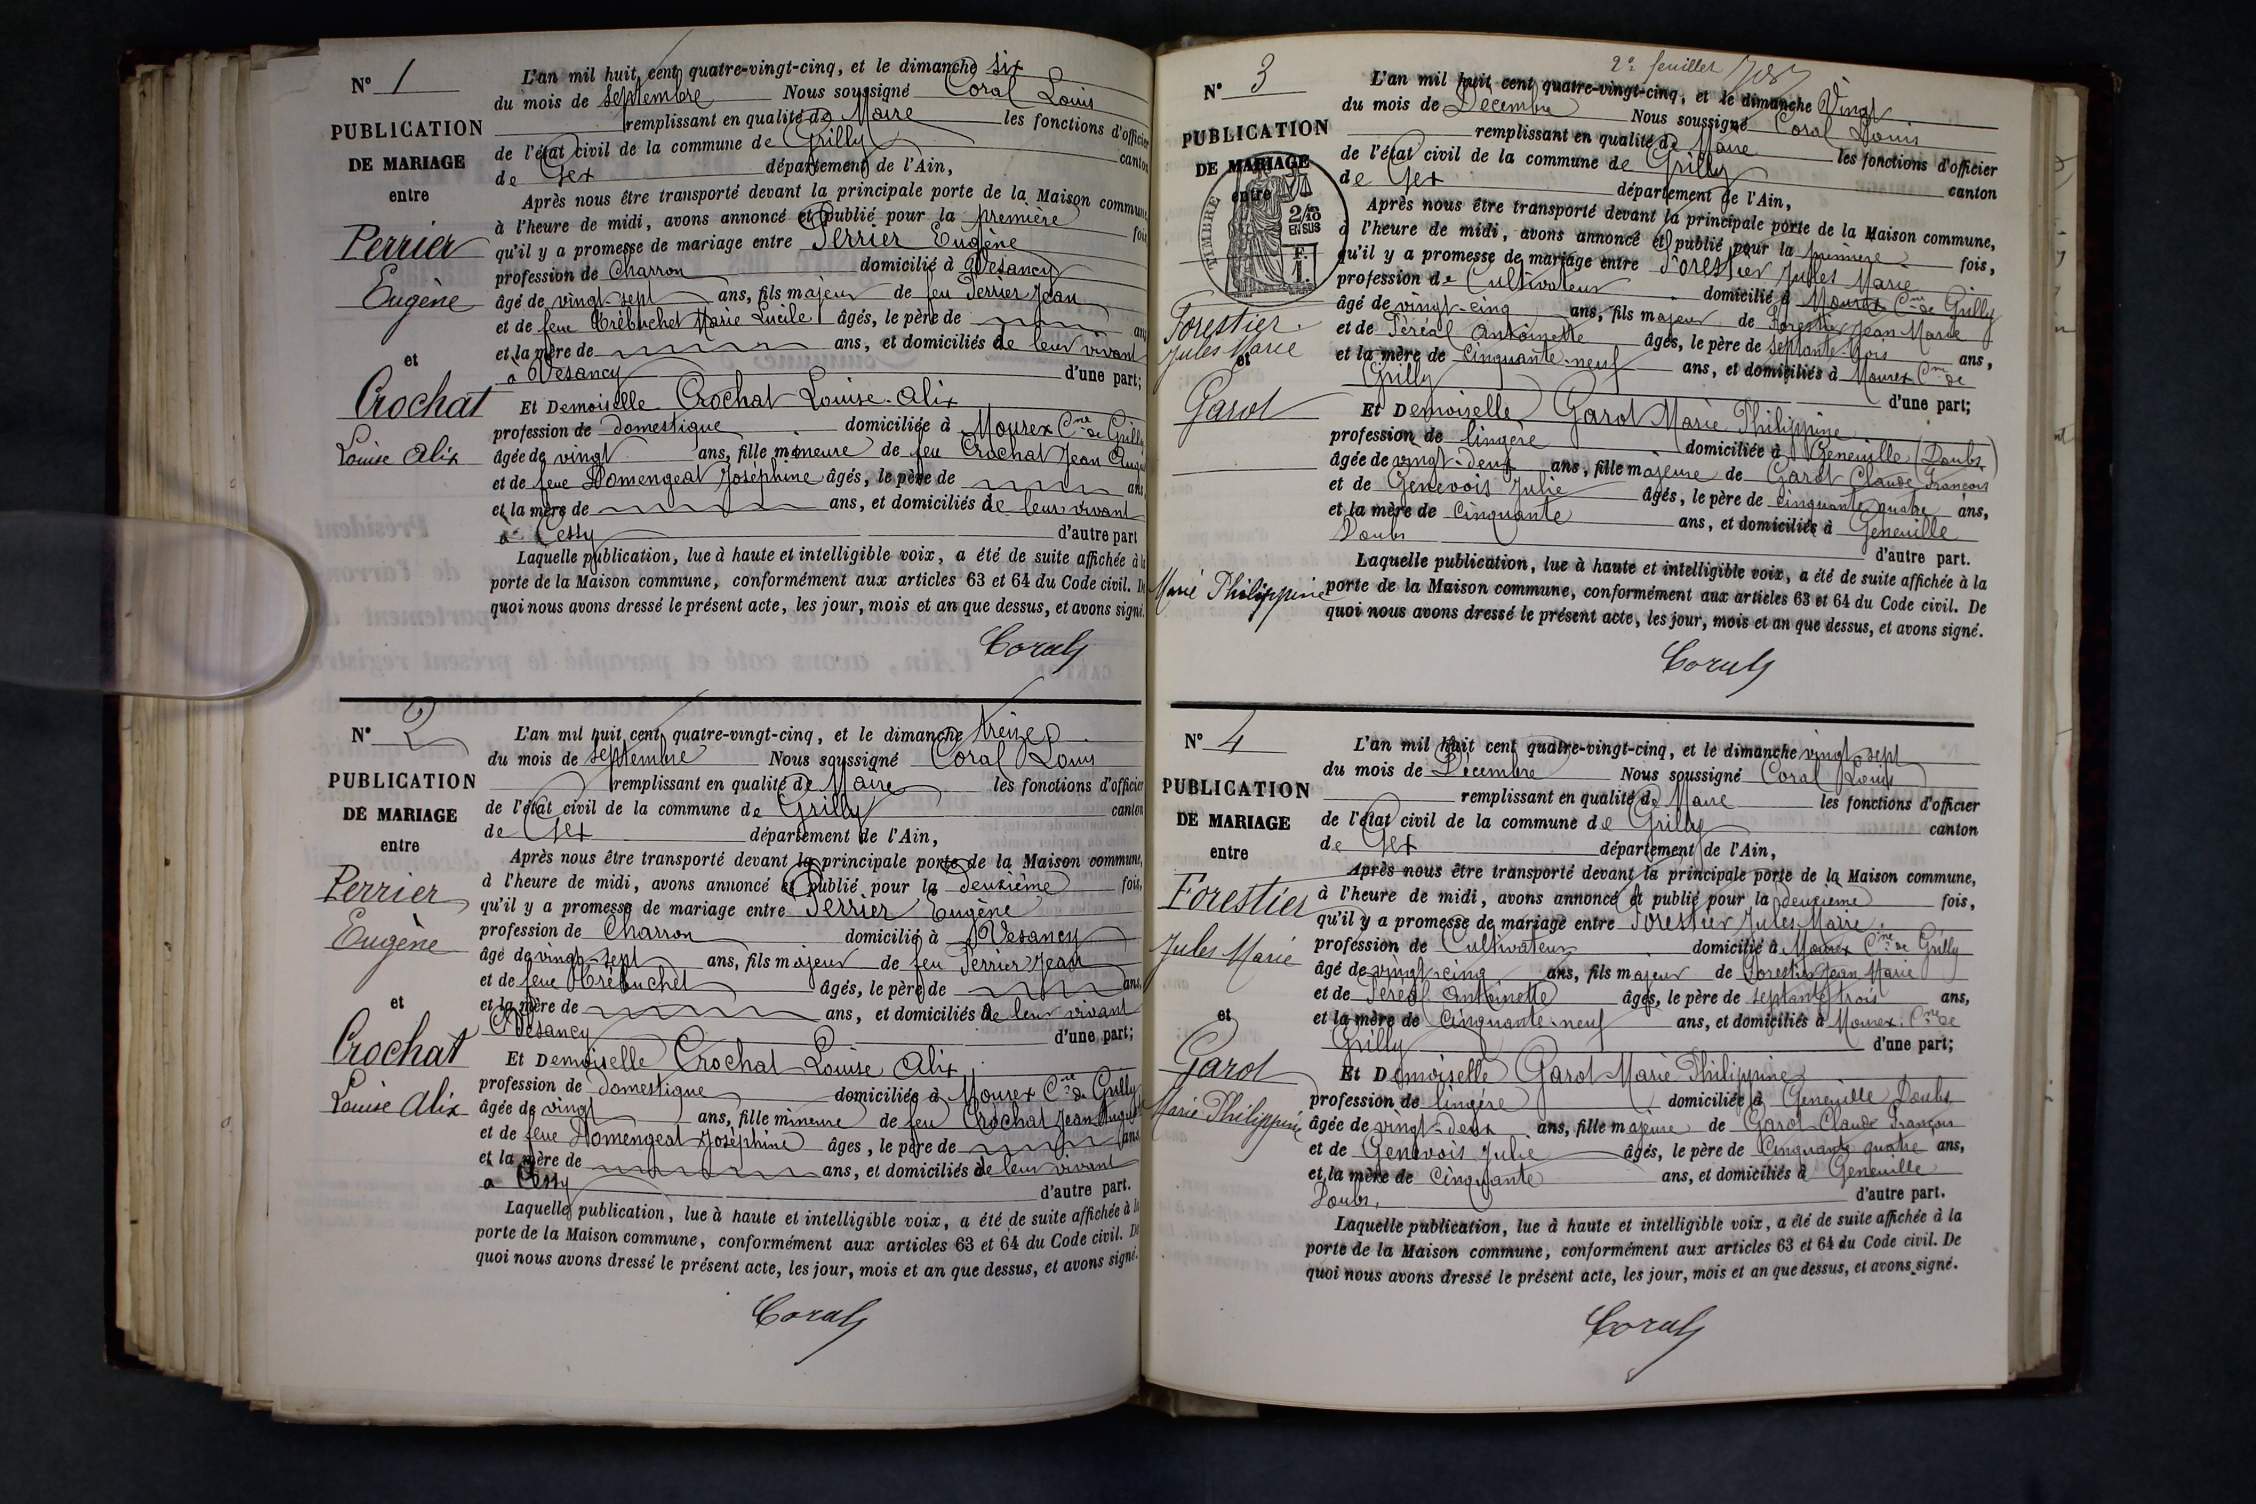 N° 1
PUBLICATION
DE MARIAGE
entre
Perrier
Eugène
et
Crochat
Louise Alix
L'an mil huit cent quatre-vingt-cinq, et le dimanche six
du mois de septembre Nous soussigné Coral Louis
remplissant en qualité de Maire les fonctions d'officier
de l'état civil de la commune de Grilly canton
de Gex département de l'Ain,
Après nous être transporté devant la principale porte de la Maison commune,
à l'heure de midi, avons annoncé et publié pour la première fois
qu'il y a promesse de mariage entre Perrier Eugène
profession de Charron domicilié à Vesancy
âgé de vingt-sept ans, fils majeur de feu Perrier Jean
et de feue Trébuchet Marie Lucile âgés, le père de ans
et la mère de ans, et domiciliés de leur vivant
à Vesancy d'une part;
Et Demoiselle Crochat Louise Alix
profession de domestique domiciliée à Mourex Cne de Grilly
âgée de vingt ans, fille mineure de feu Crochat Jean
et de feue Domengeat Joséphine âgés, le père de ans,
et la mère de ans, et domiciliés de leur vivant
à Cessy d'autre part
Laquelle publication, lue à haute et intelligible voix, a été de suite affichée à la
porte de la Maison commune, conformément aux articles 63 et 64 du Code civil. De
quoi nous avons dressé le présent acte, les jour, mois et an que dessus, et avons signé.
Coral
N° 2
PUBLICATION
DE MARIAGE
entre
Perrier
Eugène
et
Crochat
Louise Alix
L'an mil huit cent quatre-vingt-cinq, et le dimanche treize
du mois de septembre Nous soussigné Coral Louis
remplissant en qualité de Maire les fonctions d'officier
de l'état civil de la commune de Grilly canton
de Gex département de l'Ain,
Après nous être transporté devant la principale porte de la Maison commune,
à l'heure de midi, avons annoncé et publié pour la deuxième fois,
qu'il y a promesse de mariage entre Perrier Eugène
profession de Charron domicilié à Vesancy
âgé de vingt-sept ans, fils majeur de feu Perrier Jean
et de feue Trébuchet âgés, le père de ans,
et la mère de ans, et domiciliés de leur vivant
à Vesancy d'une part;
Et Demoiselle Crochat Louise Alix
profession de domestique domiciliée à Mourex Cne de Grilly
âgée de vingt ans, fille mineure de feu Crochat Jean
et de feue Domengeat Joséphine âges, le père de ans
et la mère de ans, et domiciliés de leur vivant
à Cessy d'autre part.
Laquelle publication, lue à haute et intelligible voix, a été de suite affichée à la
porte de la Maison commune, conformément aux articles 63 et 64 du Code civil. De
quoi nous avons dressé le présent acte, les jour, mois et an que dessus, et avons signé.
Coral
2e feuillet
N° 3
PUBLICATION
DE MARIAGE
entre
TIMBRE
2/10
EN SUS
F.
1.
Forestier
Jules Marie
et
Garot
Marie Philippine
L'an mil huit cent quatre-vingt-cinq, et le dimanche Vingt
du mois de Décembre Nous soussigné Coral Louis
remplissant en qualité de Maire les fonctions d'officier
de l'état civil de la commune de Grilly canton
de Gex département de l'Ain,
Après nous être transporté devant la principale porte de la Maison commune,
à l'heure de midi, avons annoncé et publié pour la première fois,
qu'il y a promesse de mariage entre Forestier Jules Marie
profession de Cultivateur domicilié à Mourex Cne de Grilly
âgé de vingt-cinq ans, fils majeur de Forestier Jean Marie
et de Péréal Antoinette âgés, le père de septante-trois ans,
et la mère de Cinquante-neuf ans, et domiciliés à Mourex Cne de
Grilly d'une part;
Et Demoiselle Garot Marie Philippine
profession de lingère domiciliée à Geneuille (Doubs)
âgée de vingt-deux ans, fille majeure de Garot Claude François
et de Genevois Julie âgés, le père de cinquante quatre ans,
et la mère de Cinquante ans, et domiciliés à Geneuille
Doubs d'autre part.
Laquelle publication, lue à haute et intelligible voix, a été de suite affichée à la
porte de la Maison commune, conformément aux articles 63 et 64 du Code civil. De
quoi nous avons dressé le présent acte, les jour, mois et an que dessus, et avons signé.
Coral
N° 4
PUBLICATION
DE MARIAGE
entre
Forestier
Jules Marie
et
Garot
Marie Philippine
L'an mil huit cent quatre-vingt-cinq, et le dimanche vingt sept
du mois de Décembre Nous soussigné Coral Louis
remplissant en qualité de Maire les fonctions d'officier
de l'état civil de la commune de Grilly canton
de Gex département de l'Ain,
Après nous être transporté devant la principale porte de la Maison commune,
à l'heure de midi, avons annoncé et publié pour la deuxième fois,
qu'il y a promesse de mariage entre Forestier Jules Marie
profession de Cultivateur domicilié à Mourex Cne de Grilly
âgé de vingt-cinq ans, fils majeur de Forestier Jean Marie
et de Péréal Antoinette âgés, le père de septante trois ans,
et la mère de Cinquante-neuf ans, et domiciliés à Mourex Cne de
Grilly d'une part;
Et Demoiselle Garot Marie Philippine
profession de lingère domiciliée à Geneuille Doubs
âgée de vingt-deux ans, fille majeure de Garot Claude François
et de Genevois Julie âgés, le père de Cinquante quatre ans,
et la mère de Cinquante ans, et domiciliés à Geneuille
Doubs, d'autre part.
Laquelle publication, lue à haute et intelligible voix, a été de suite affichée à la
porte de la Maison commune, conformément aux articles 63 et 64 du Code civil. De
quoi nous avons dressé le présent acte, les jour, mois et an que dessus, et avons signé.
Coral